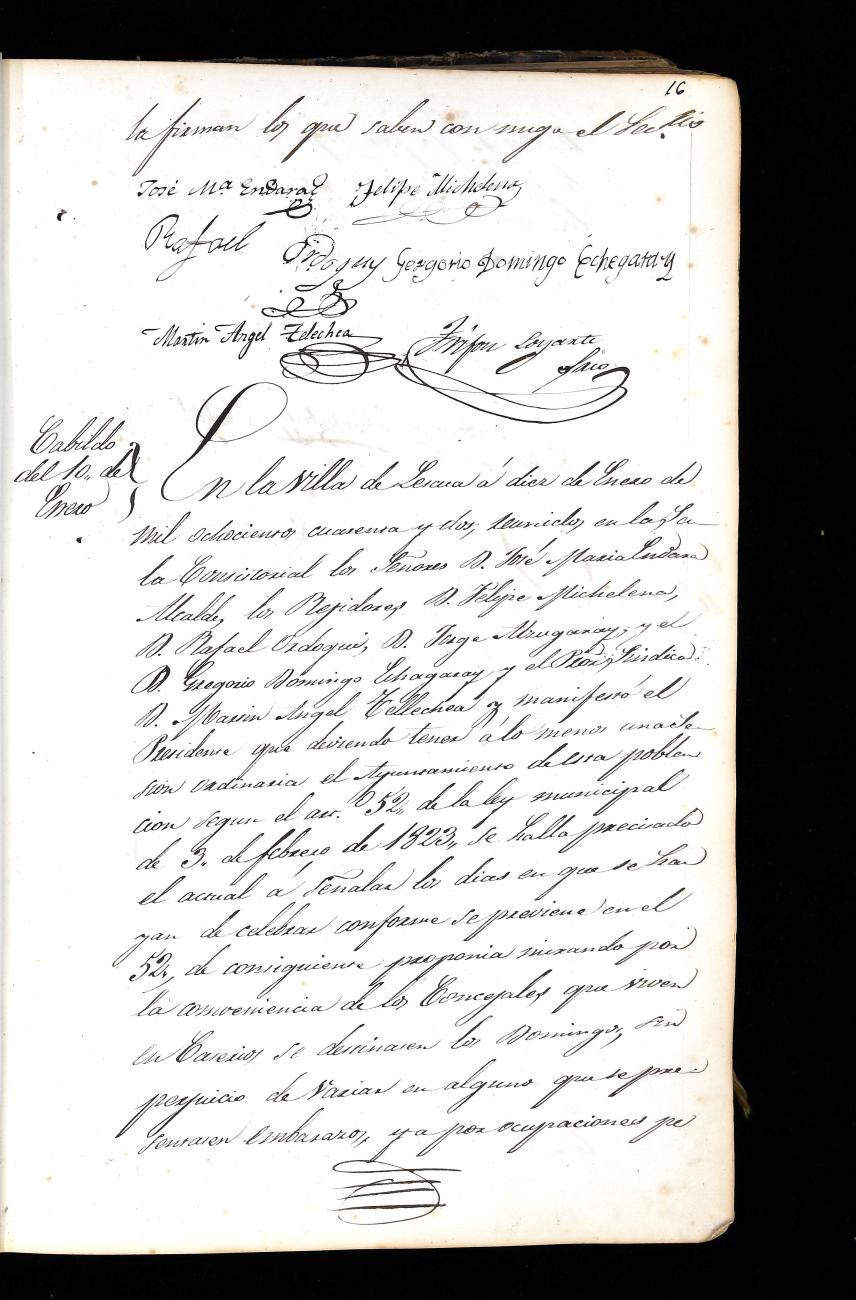 16
la firman los que saben con migo el Secrio
José Ma Endara Felipe Michelena
Rafael Ordoquy Gergorio Domingo Echegaray
Martin Angel Telechea
Trifon Loyarte
Srio
Cabildo
del 10,, de
Enero
En la Villa de Lesaca á diez de Enero de
mil ochocientos cuarenta y dos; reunidos en la Sa-
la Consistorial los Señores D. José Maria Endara
Alcalde, los Rejidores D. Felipe Michelena,
D. Rafael Ordoqui, D. Jorge Alzugaray, y el
D. Gregorio Domingo Echagaray y el Pror Sindico
D. Martin Angel Tellechea y manifestó el
Presidente que deviendo tener á lo menos una se-
sion ordinaria el Ayuntamiento de esta pobla-
cion segun el art. 52,, de la ley municipal
de 3,, de febrero de 1823,, se halla precisado
el actual á señalar los dias en que se ha
yan de celebrar conforme se previene en el
52,, de consiguiente proponia mirando por
la conveniencia de los Concejales que viven
en Caserios se destinasen los Domingos, sin
perjuicio de variar en alguno que se pre-
sentasen embarazos, ya por ocupaciones pe